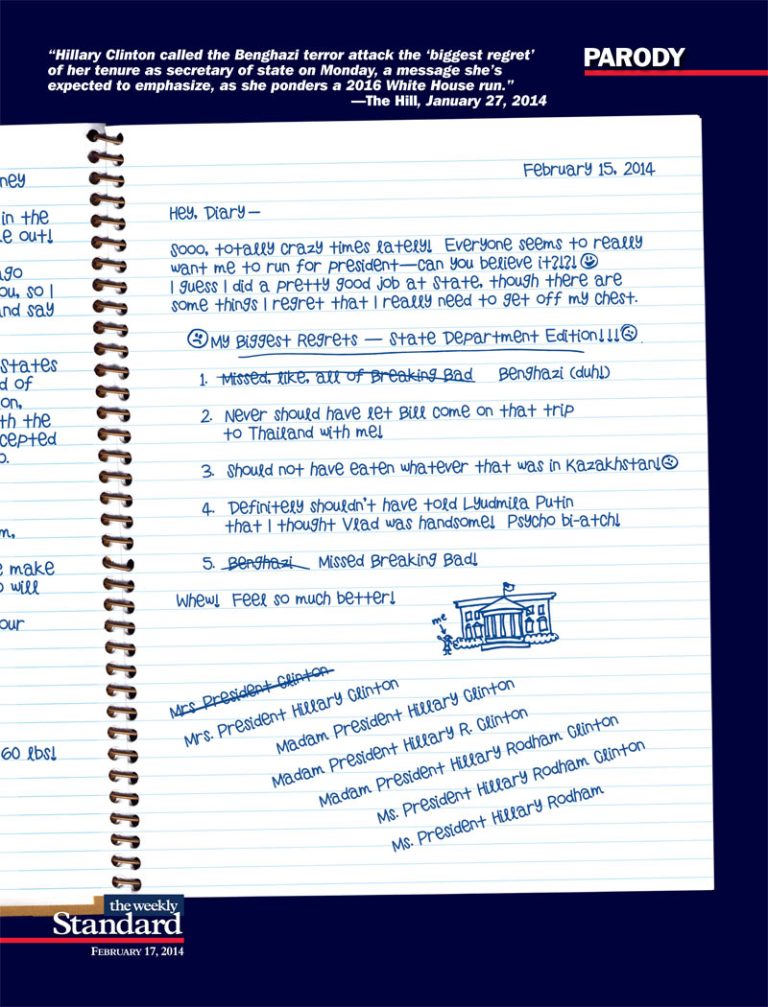 “Hillary Clinton called the Benghazi terror attack the ‘biggest regret’
of her tenure as secretary of state on Monday, a message she’s
expected to emphasize, as she ponders a 2016 White House run.”
—The Hill, January 27, 2014
PARODY
ney
in the
e out!
ago
ou, so I
and say
states
d of
on,
th the
cepted
o.
m,
e make
o will
our
60 lbs!
February 15, 2014
Hey, Diary—
Sooo, totally crazy times lately! Everyone seems to really
want me to run for president—can you believe it?!?!
I guess I did a pretty good job at State, though there are
some things I regret that I really need to get off my chest.
My Biggest Regrets — State Department Edition!!!
1. Missed, like, all of Breaking Bad Benghazi (duh!)
2. Never should have let Bill come on that trip
to Thailand with me!
3. Should not have eaten whatever that was in Kazakhstan!
4. Definitely shouldn't have told Lyudmila Putin
that I thought Vlad was handsome! Psycho bi-atch!
5. Benghazi Missed Breaking Bad!
Whew! Feel so much better!
me
Mrs President Clinton
Mrs. President Hillary Clinton
Madam President Hillary Clinton
Madam President Hillary R. Clinton
Madam President Hillary Rodham Clinton
Ms. President Hillary Rodham Clinton
Ms. President Hillary Rodham
the weekly
Standard
FEBRUARY 17, 2014